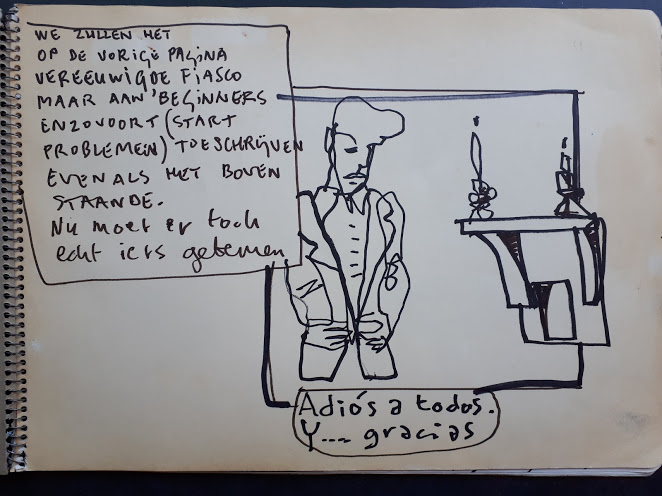 WE ZULLEN HET
OP DE VORIGE PAGINA
VEREEUWIGDE FIASCO
MAAR AAN 'BEGINNERS
ENZOVOORT (START
PROBLEMEN) TOESCHRIJVEN
EVENALS HET BOVEN
STAANDE.
Nu moet er toch
echt iets gebeuren
Adiós a todos.
Y.... gracias